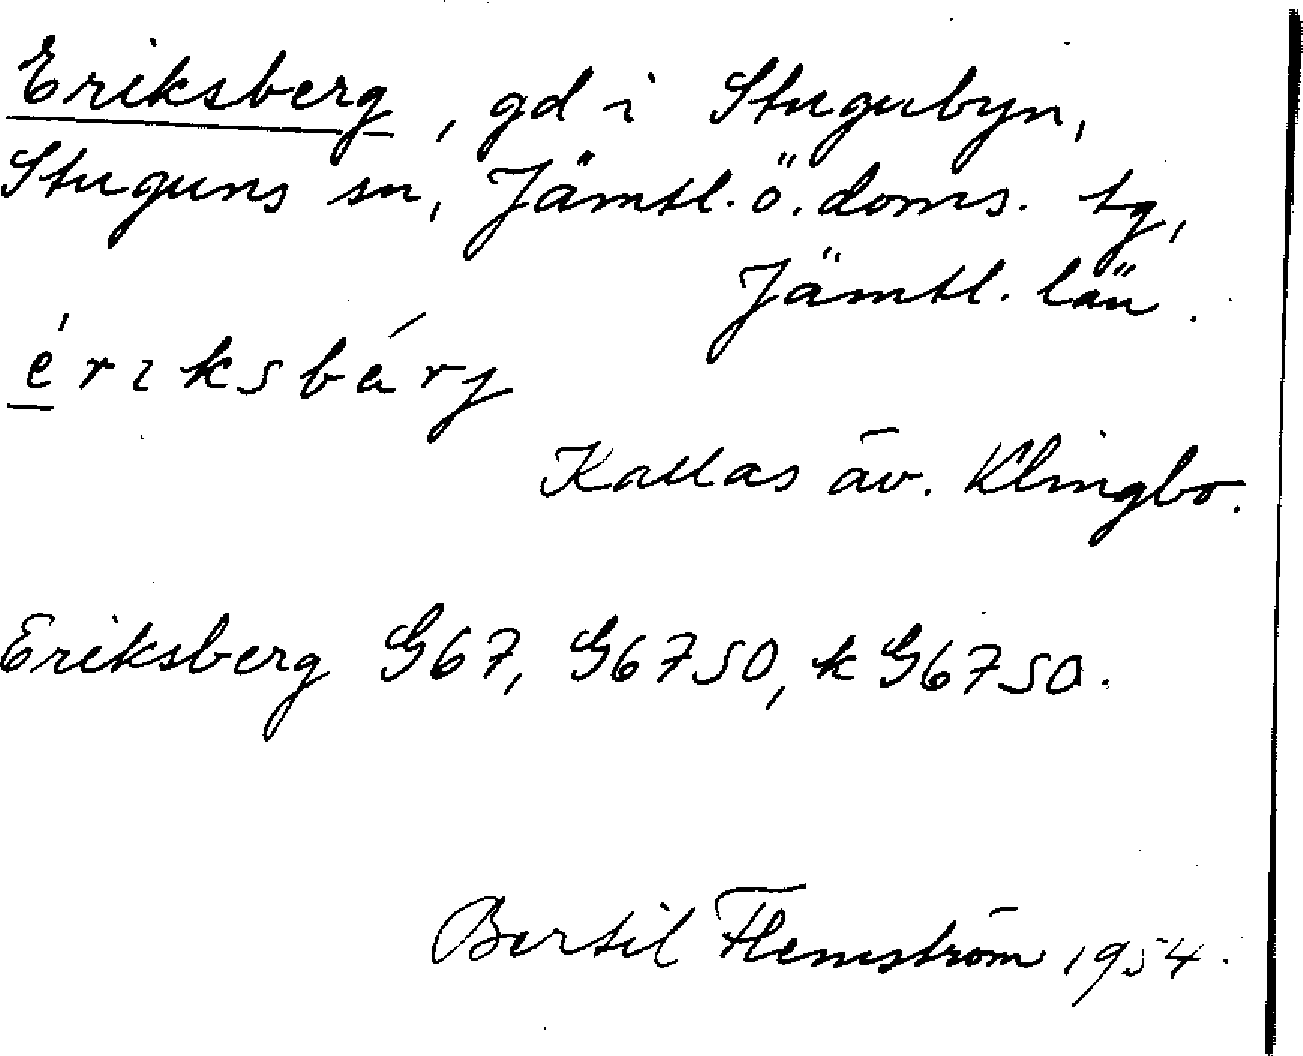 Eriksberg, gd i Stugubyn,
Stuguns sn, Jämtl. ö. doms. tg,
Jämtl. län.
é r ı k s b á r j
Kallas äv. Klingbo.
Eriksberg G67, G67SO, k G67SO.
Bertil Flemström 1954.